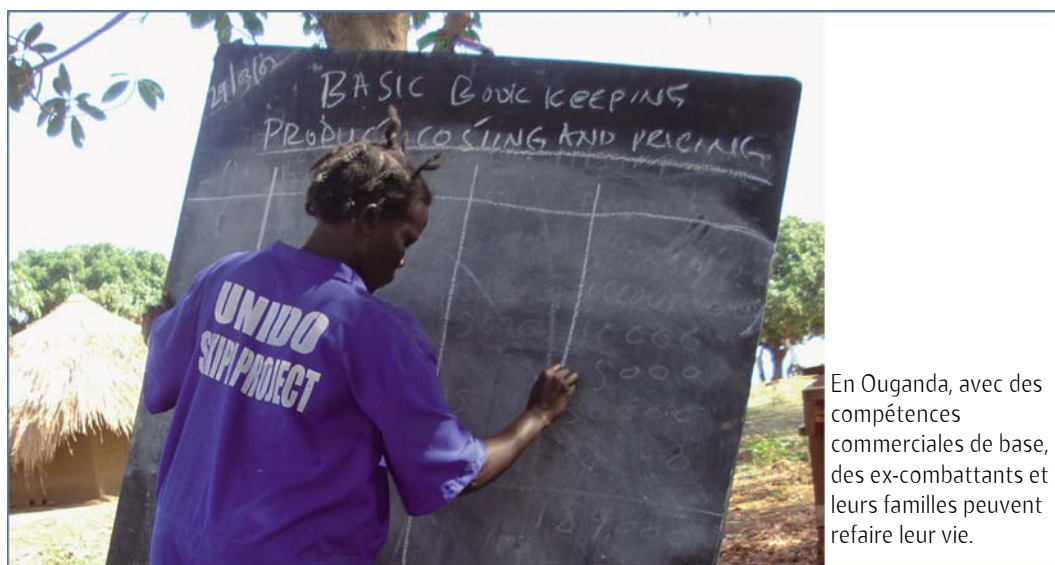 29/03/02
BASIC BOOK KEEPING
COSTING AND PRICING
UNIDO
PROJECT
5000
En Ouganda, avec des
compétences
commerciales de base,
des ex-combattants et
leurs familles peuvent
refaire leur vie.